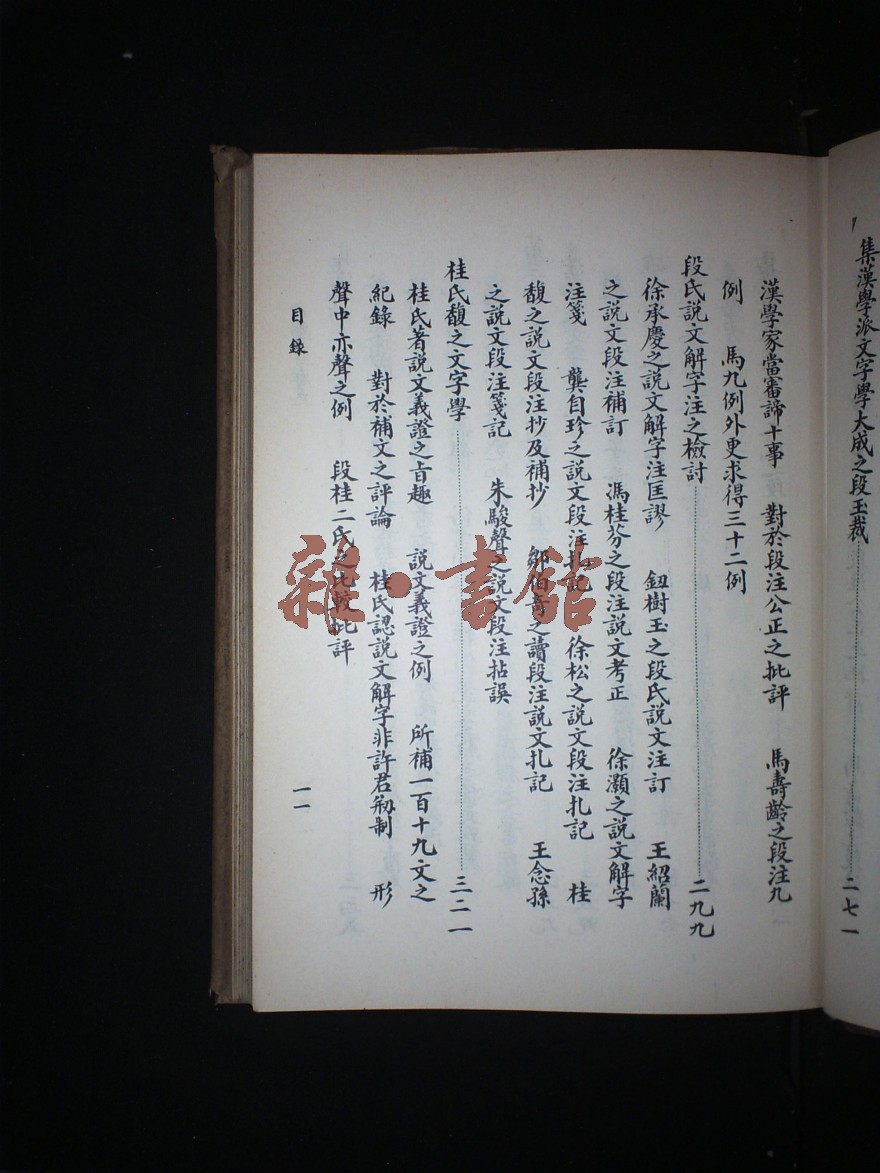 集漢學派文字學大成之段玉裁……二七一
漢學家當審諦十事 對於段注公正之批評 馬壽齡之段注九
例 馬九例外更求得三十二例
段氏說文解字注之檢討……二九九
徐承慶之說文解字注匡謬 鈕樹玉之段氏說文注訂 王紹蘭
之說文段注補訂 馮桂芬之段注說文考正 徐灝之說文解字
注箋 龔自珍之說文段注札記 徐松之說文段注扎記 桂
馥之說文段注抄及補抄 鄒伯奇之讀段注說文扎記 王念孫
之說文段注箋記 朱駿聲之說文段注拈誤
桂氏馥之文字學……三二一
桂氏著說文義證之旨趣 說文義證之例 所補一百十九文之
紀錄 對於補文之評論 桂氏認說文解字非許君剏制 形
聲中亦聲之例 段桂二氏之比較批評
目錄 一一
雜·書館